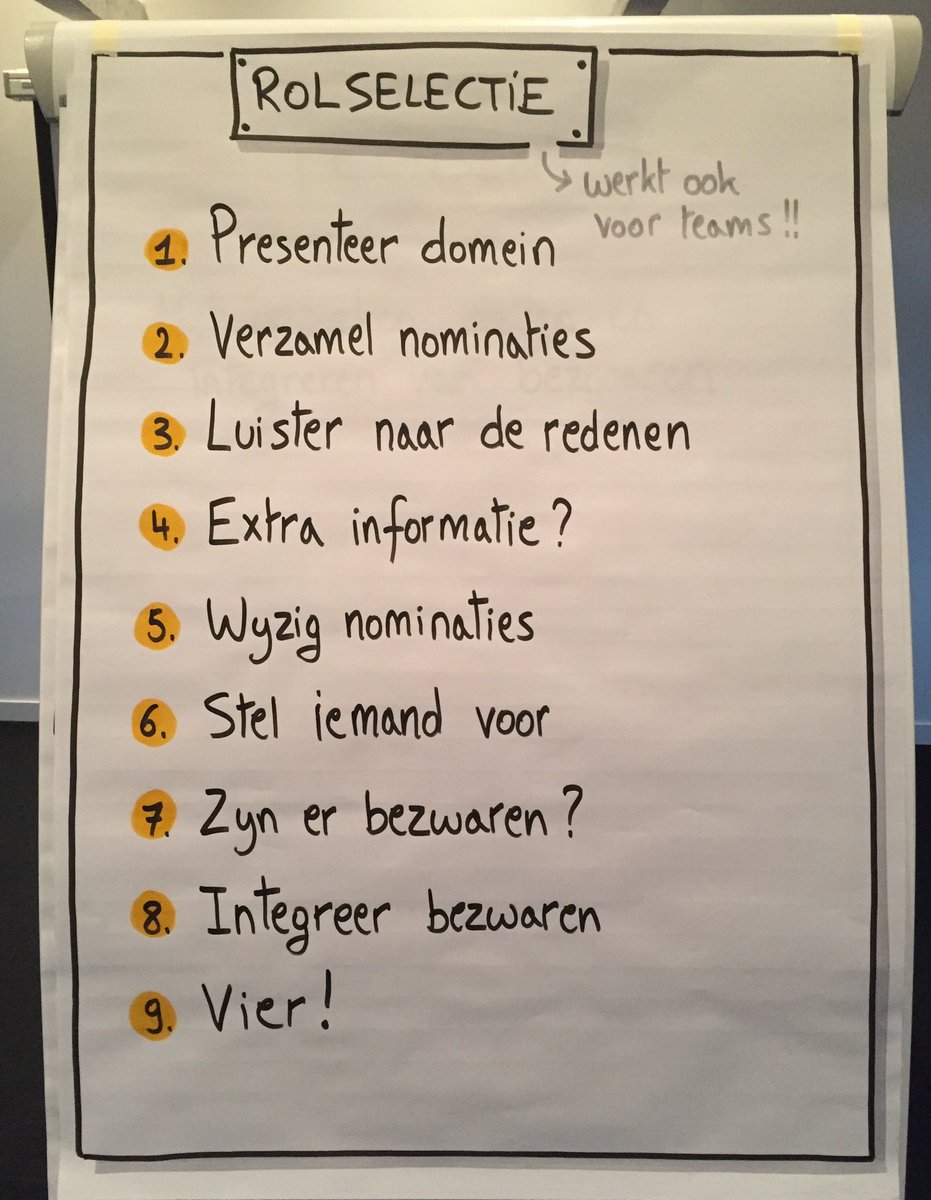 ROLSELECTIE
werkt ook
voor teams!!
1. Presenteer domein
2. Verzamel nominaties
3. Luister naar de redenen
4. Extra informatie?
5. Wyzig nominaties
6. Stel iemand voor
7. Zyn er bezwaren?
8. Integreer bezwaren
9. Vier!